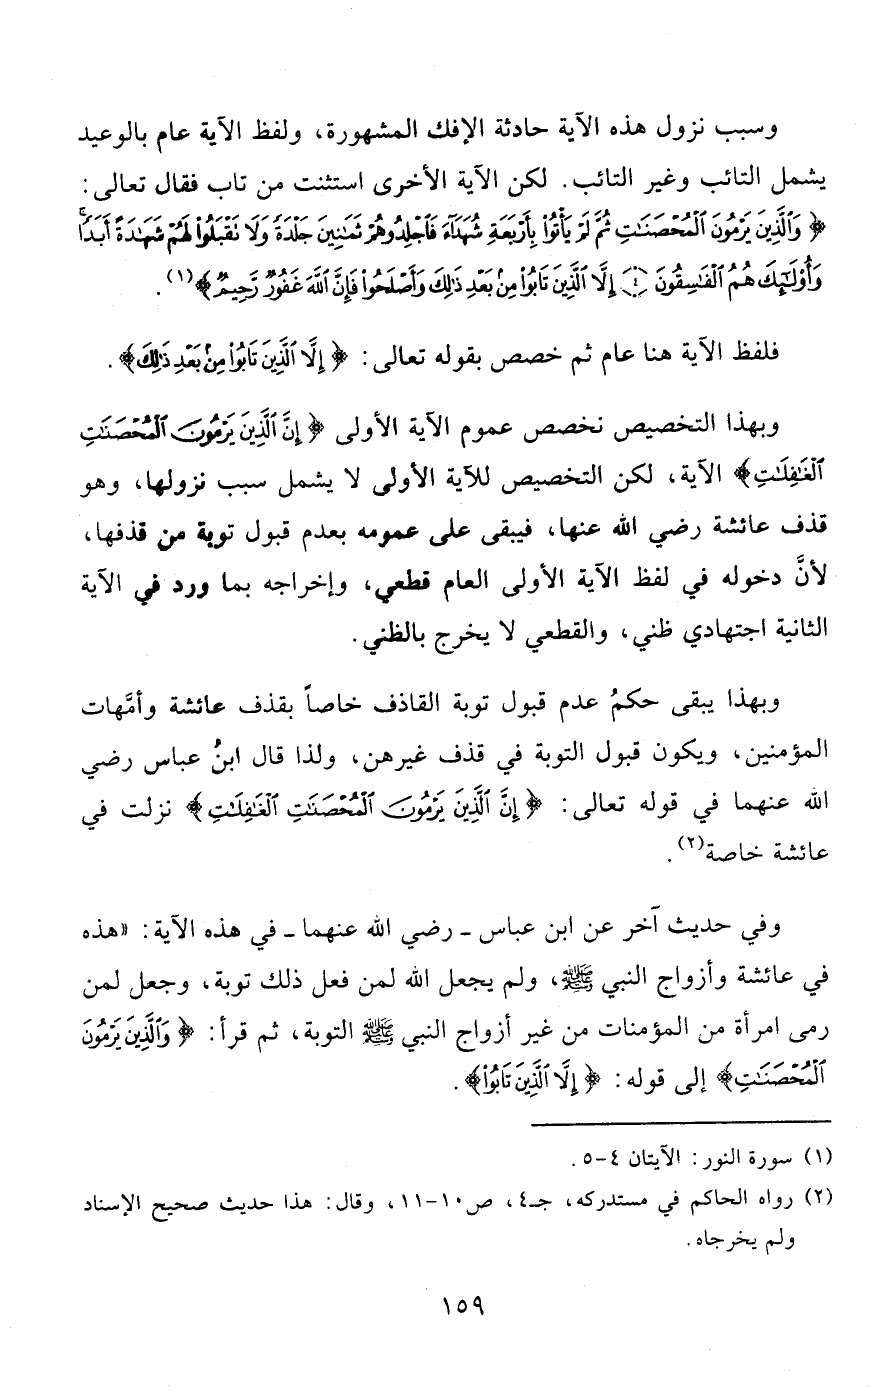 وسبب نزول هذه الآية حادثة الإفك المشهورة، ولفظ الآية عام بالوعيد
يشمل التائب وغير التائب. لكن الآية الأخرى استثنت من تاب فقال تعالى:
﴿ وَٱلَّذِينَ يَرْمُونَ ٱلْمُحْصَنَٰتِ ثُمَّ لَمْ يَأْتُوا۟ بِأَرْبَعَةِ شُهَدَآءَ فَٱجْلِدُوهُمْ ثَمَٰنِينَ جَلْدَةً وَلَا تَقْبَلُوا۟ لَهُمْ شَهَٰدَةً أَبَدًا ۚ
وَأُو۟لَٰٓئِكَ هُمُ ٱلْفَٰسِقُونَ ﴿٤﴾ إِلَّا ٱلَّذِينَ تَابُوا۟ مِنۢ بَعْدِ ذَٰلِكَ وَأَصْلَحُوا۟ فَإِنَّ ٱللَّهَ غَفُورٌ رَّحِيمٌ ﴾(١).
فلفظ الآية هنا عام ثم خصص بقوله تعالى: ﴿ إِلَّا ٱلَّذِينَ تَابُوا۟ مِنۢ بَعْدِ ذَٰلِكَ ﴾.
وبهذا التخصيص نخصص عموم الآية الأولى ﴿ إِنَّ ٱلَّذِينَ يَرْمُونَ ٱلْمُحْصَنَٰتِ
ٱلْغَٰفِلَٰتِ ﴾ الآية، لكن التخصيص للآية الأولى لا يشمل سبب نزولها، وهو
قذف عائشة رضي الله عنها، فيبقى على عمومه بعدم قبول توبة من قذفها،
لأنَّ دخوله في لفظ الآية الأولى العام قطعي، وإخراجه بما ورد في الآية
الثانية اجتهادي ظني، والقطعي لا يخرج بالظني.
وبهذا يبقى حكمُ عدم قبول توبة القاذف خاصاً بقذف عائشة وأمَّهات
المؤمنين، ويكون قبول التوبة في قذف غيرهن، ولذا قال ابنُ عباس رضي
الله عنهما في قوله تعالى: ﴿ إِنَّ ٱلَّذِينَ يَرْمُونَ ٱلْمُحْصَنَٰتِ ٱلْغَٰفِلَٰتِ ﴾ نزلت في
عائشة خاصة(٢).
وفي حديث آخر عن ابن عباس ـ رضي الله عنهما ـ في هذه الآية: «هذه
في عائشة وأزواج النبي ﷺ، ولم يجعل الله لمن فعل ذلك توبة، وجعل لمن
رمى امرأة من المؤمنات من غير أزواج النبي ﷺ التوبة، ثم قرأ: ﴿ وَٱلَّذِينَ يَرْمُونَ
ٱلْمُحْصَنَٰتِ ﴾ إلى قوله: ﴿ إِلَّا ٱلَّذِينَ تَابُوا۟ ﴾.
(١) سورة النور: الآيتان ٤-٥.
(٢) رواه الحاكم في مستدركه، جـ٤، ص١٠-١١، وقال: هذا حديث صحيح الإسناد
ولم يخرجاه.
١٥٩